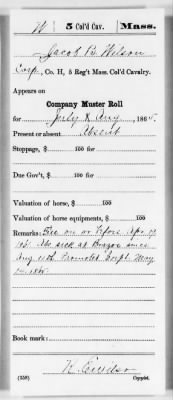 W | 5 Col'd Cav. | Mass.
Jacob B. Wilson
Corp, Co. H, 5 Reg't Mass. Col'd Cavalry.
Appears on
Company Muster Roll
for July & Aug, 1865.
Present or absent Absent
Stoppage, $ 100 for
Due Gov't, $ 100 for
Valuation of horse, $ 100
Valuation of horse equipments, $ 100
Remarks: Free on or before Apr 19
'61. Abs sick at Brazos since
Aug 11th Promoted Corpl. May
1865.
Book mark:
(358) Copyist.